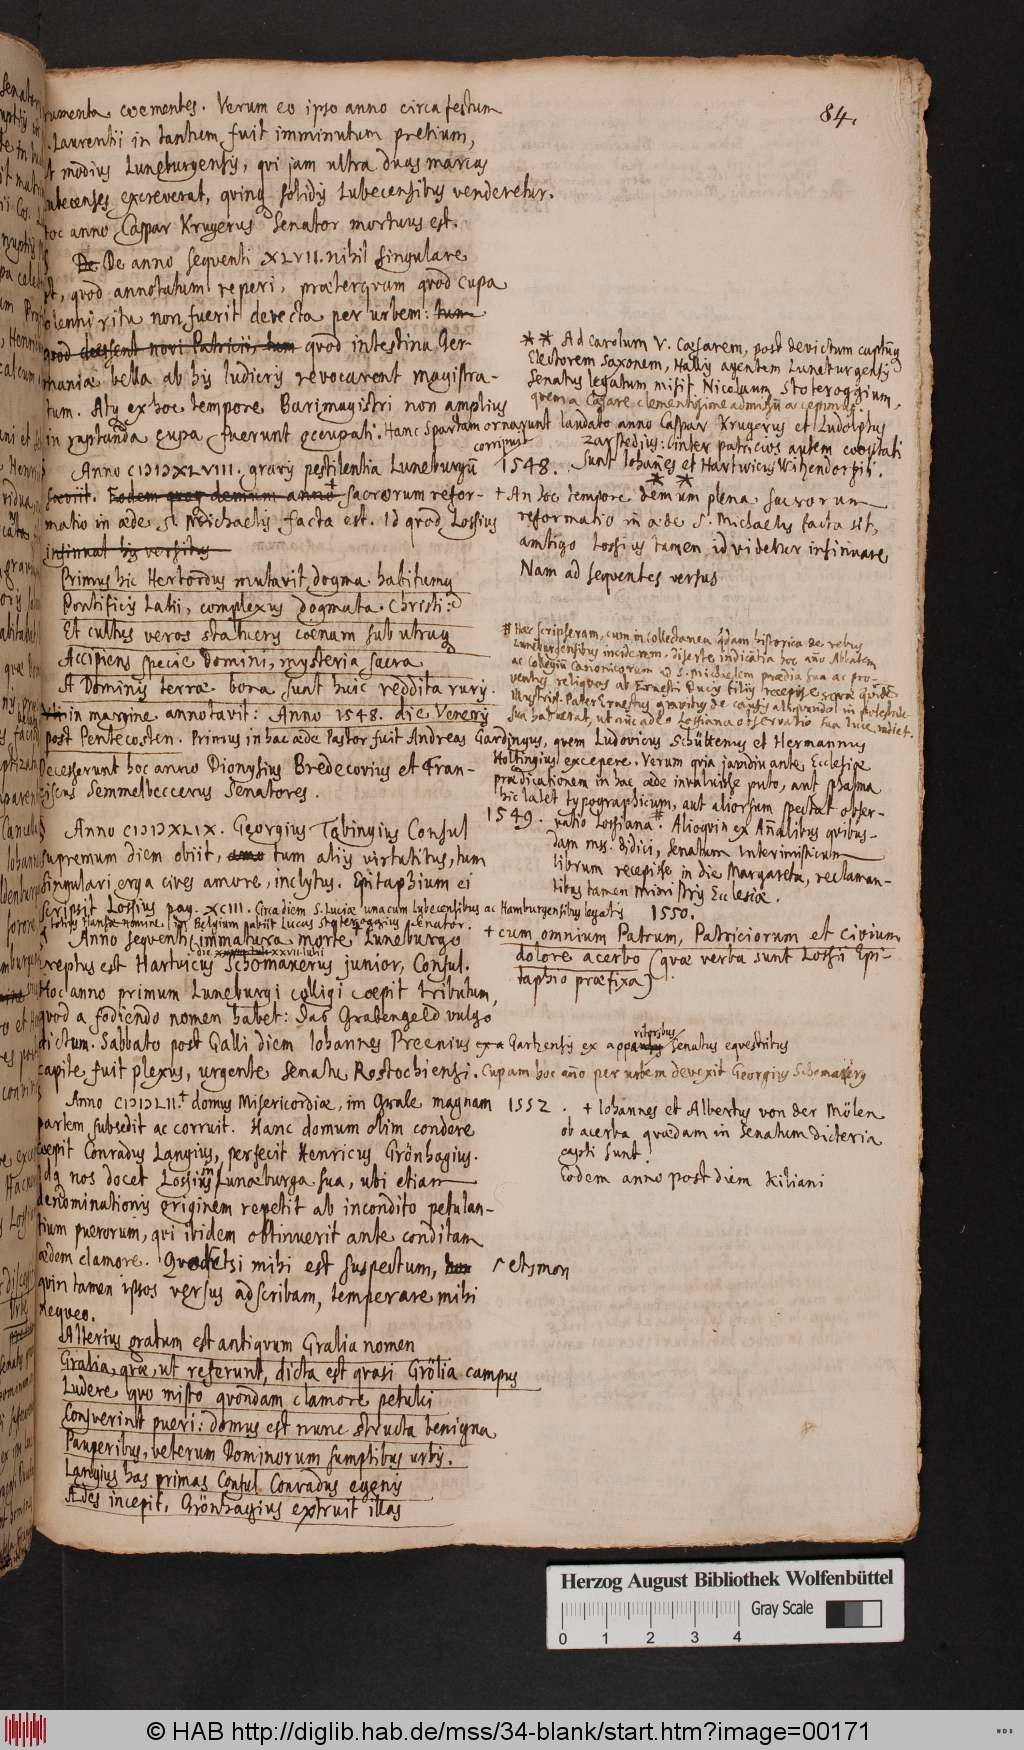 84.
rumenta coementes. Verum eo ipso anno circa festum
S. Laurentii in tantum fuit imminutum pretium,
ut modius Luneburgensis, qvi jam ultra duas marcas
Lubecenses excreverat, qvinq solidis Lubecensibus venderetur.
Hoc anno Caspar Krugerus Senator mortuus est.
De De anno seqventi XLVII. nihil singulare
est, qvod annotatum reperi, præterqvam qvod cupa
solenni ritu non fuerit devecta per urbem: tum
qvod deessent novi Patricii, tum qvod intestina Ger-
maniæ bella ab his ludicris revocarent magistra-
tum. Atq ex hoc tempore Barimagistri non amplius
in raptanda cupa fuerunt occupati. Hanc Spartam ornarunt laudato anno Caspar Krugerus et Ludolphus
Zarstedius: inter patricios autem cooptati
sunt Iohannes et Hartwicus Witzendorpii.
** Ad Carolum V. Cæsarem, post devictum captumq
Electorem Saxonem, Hallis agentem Luneburgensis
Senatus legatum misit Nicolaum Stoteroggium,
quem a Cæsare clementissime admissum ac
Anno CIↃIↃXLVIII. gravis pestilentia Luneburgum corripuit 1548.
sæviit. Eodem quoq demum anno + sacrorum refor-
matio in æde S. Michaelis facta est. Id qvod Lossius
insinuat his versibus
** 
+ An hoc tempore demum plena sacrorum
reformatio in æde S. Michaelis facta sit,
ambigo. Lossius tamen id videtur insinuare
Nam ad seqventes versus
Primus hic Herbordus mutavit dogma habitumq
Pontificis Latii, complexus dogmata Christi:
Et cultus veros statuens cœnam sub utraq
Accipiens specie Domini, mysteria sacra
A Dominis terræ bona sunt huic reddita ruris.
in margine annotavit: Anno 1548. die Veneris
post Pentecosten. Primus in hac æde Pastor fuit Andreas Gardingus, qvem Ludovicus Schültenius et Hermannus
Holtingius excepere. Verum qvia jamdiu ante Ecclesiæ
prædicationem in hac æde invaluisse puto, aut sphalma
hic latet typographicum, aut aliorsum spectat obser-
vatio Lossiana #. Alioqvin ex Annalibus qvibus-
dam mss. didici, Senatum Interimisticum
librum recepisse in die Margaretæ, reclaman-
tibus tamen Ministris Ecclesiæ.
# Hæc scripseram, cum in collectanea qdam historica de rebus
Luneburgensibus inciderem, diserte indicantia hoc año Abbatem
ac Collegium Canonicorum ad S. Michaelem prædia sua ac pro-
ventus reliquos ab Ernesti Ducis filiis recepisse,
Decesserunt hoc anno Dionysius Bredecovius et Fran-
ciscus Semmelbeccerus Senatores.
Anno CIↃIↃXLIX. Georgius Tobingius Consul 1549.
supremum diem obiit, tum aliis virtutibus, tum
singulari erga cives amore, inclytus. Epitaphium ei
scripsit Lossius pag. XCIII. Circa diem S. Luciæ una cum Lybecensibus ac Hamburgensibus legatis
totius Hansæ nomine, in Belgium abiit Lucas Stöteroggius Senator. 1550.
Anno seqventi immatura morte + Luneburgo
die XXVII. Iulii
ereptus est Hartvicus Schomakerus junior, Consul.
+ cum omnium Patrum, Patriciorum et civium
dolore acerbo (qvæ verba sunt Lossii Epi-
taphio præfixa)
Hoc anno primum Luneburgi colligi cœpit tributum,
qvod a fodiendo nomen habet: Das Grabengeld vulgo
dictum. Sabbato post Galli diem Iohannes Preenius ex a Gartzensis ex apparitoribus Senatus eqvestribus
capite fuit plexus, urgente Senatu Rostochiensi. Cupam hoc año per urbem devexit Georgius Schomakerus
Anno CIↃIↃLII. + domus Misericordiæ, im Grale magnam 1552.
partem subsedit ac corruit. Hanc domum olim condere
cœpit Conradus Langius, perfecit Henricus Grönhagius.
Idq nos docet Lossius in Lunæburga sua, ubi etiam
denominationis originem repetit ab incondito petulan-
tium puerorum, qvi ibidem obtinuerit ante conditam
ædem clamore. Qvod etsi mihi est suspectum, non
qvin tamen ipsos versus adscribam, temperare mihi
neqveo.
+ Iohannes et Albertus von der Mölen
ob acerba qvædam in Senatum dicteria
capti sunt.
Eodem anno post diem Kiliani
Alterius gratum est antiqvum Gralia nomen
Gralia, qvæ, ut referunt, dicta est qvasi Grölia campus
Ludere qvo misto qvondam clamore petulci
Consverint pueri: domus est nunc structa benigna
Pauperibus, veterum Dominorum sumptibus urbis.
Langius has primas Consul Conradus egenis
Ædes incepit, Grönhagius extruit illas
Herzog August Bibliothek Wolfenbüttel
Gray Scale
0 1 2 3 4
© HAB http://diglib.hab.de/mss/34-blank/start.htm?image=00171
WDB